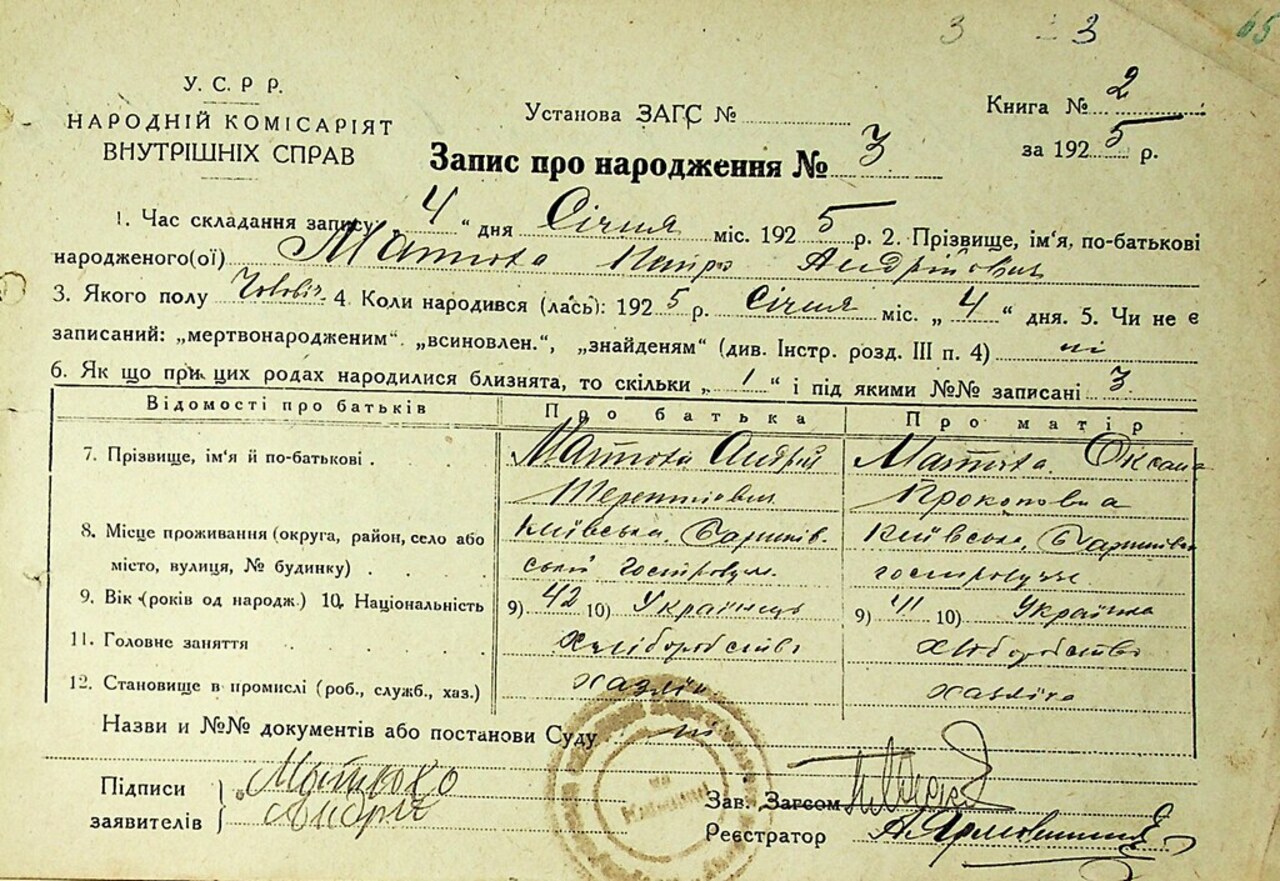 3 3 65
У. С. Р. Р.
НАРОДНІЙ КОМІСАРІЯТ
ВНУТРІШНІХ СПРАВ
Установа ЗАГС №
Книга № 2
за 1925 р.
Запис про народження № 3
1. Час складання запису: „4“ дня Січня міс. 1925 р. 2. Прізвище, ім'я, по-батькові
народженого(ої) Петро Андрійович
3. Якого полу Чоловіч. 4. Коли народився (лась): 1925 р. Січня міс. „4“ дня. 5. Чи не є
записаний: „мертвонародженим“. „всиновлен.“, „знайденям“ (див. Інстр. розд. III п. 4) ні
6. Як що при цих родах народилися близнята, то скільки „1“ і під якими №№ записані 3
Відомості про батьків Про батька Про матір
7. Прізвище, ім'я й по-батькові . Андрій Оксана
Терентіович Прокоповна
8. Місце проживання (округа, район, село або Київська, Київська,
місто, вулиця, № будинку) . .
9. Вік (років од народж.) 10. Національність 9) 42 10) Українець 9) 41 10) Українка
11. Головне заняття . . . . . Хліборобство Хліборобство
12. Становище в промислі (роб., служб., хаз.) хазяін хазяіка
Назви и №№ документів або постанови Суду ні
Підписи
заявителів
Андрій
Зав. Загсом
Реєстратор